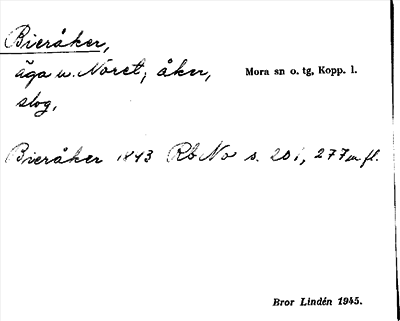 Bieråker,
äga u. Noret; åker,
slog.
Mora sn o. tg, Kopp. l.
Bieråker 1843 Rb No s. 201, 277 m.fl.
Bror Lindén 1945.